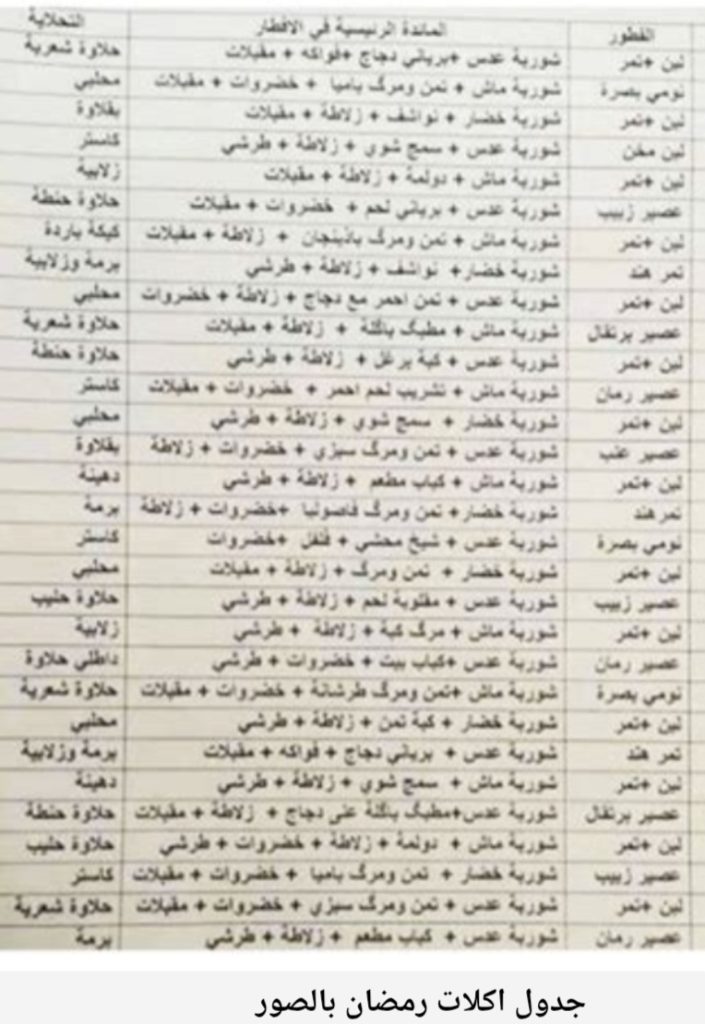 الفطور المائدة الرئيسية في الافطار التحلاية
لبن +تمر شوربة عدس +برياني دجاج +فواكه + مقبلات حلاوة شعرية
نومي بصرة شوربة ماش + تمن ومرگ باميا + خضروات + مقبلات محلبي
لبن +تمر شوربة خضار + نواشف + زلاطة + مقبلات بقلاوة
لبن مخن شوربة عدس + سمچ شوي + زلاطة + طرشي كاستر
لبن +تمر شوربة ماش + دولمة + زلاطة + مقبلات زلابية
عصير زبيب شوربة عدس + برياني لحم + خضروات + مقبلات حلاوة حنطة
لبن +تمر شوربة ماش + تمن ومرگ باذنجان + زلاطة + مقبلات كيكة باردة
تمر هند شوربة خضار+ نواشف + زلاطة + طرشي برمة وزلابية
لبن +تمر شوربة عدس + تمن احمر مع دجاج + زلاطة + خضروات محلبي
عصير برتقال شوربة ماش + مطبگ باگلة + زلاطة + مقبلات حلاوة شعرية
لبن +تمر شوربة عدس + كبة برغل + زلاطة + طرشي حلاوة حنطة
عصير رمان شوربة ماش + تشريب لحم احمر + خضروات + مقبلات كاستر
لبن +تمر شوربة خضار + سمچ شوي + زلاطة + طرشي محلبي
عصير عنب شوربة عدس + تمن ومرگ سبزي + خضروات + زلاطة بقلاوة
لبن +تمر شوربة ماش + كباب مطعم + زلاطة + طرشي دهينة
تمر هند شوربة خضار+ تمن ومرگ فاصوليا +خضروات + زلاطة برمة
نومي بصرة شوربة عدس + شيخ محشي + فلفل +خضروات كاستر
لبن +تمر شوربة خضار + تمن ومرگ + زلاطة + مقبلات محلبي
عصير زبيب شوربة عدس + مقلوبة لحم + زلاطة + طرشي حلاوة حليب
لبن +تمر شوربة ماش + مرگ كبة + زلاطة + طرشي زلابية
عصير رمان شوربة عدس +كباب بيت + خضروات + طرشي داطلي حلاوة
نومي بصرة شوربة ماش +تمن ومرگ طرشانة + خضروات + مقبلات حلاوة شعرية
لبن +تمر شوربة خضار + كبة تمن + زلاطة + طرشي محلبي
تمر هند شوربة عدس + برياني دجاج + فواكه + مقبلات برمة وزلابية
لبن +تمر شوربة ماش + سمچ شوي + زلاطة + طرشي دهينة
عصير برتقال شوربة عدس+مطبگ باگلة على دجاج + زلاطة + مقبلات حلاوة حنطة
لبن +تمر شوربة ماش + دولمة + زلاطة + خضروات + طرشي حلاوة حليب
عصير زبيب شوربة خضار + تمن ومرگ باميا + خضروات + مقبلات كاستر
لبن +تمر شوربة عدس + تمن ومرگ سبزي + خضروات + مقبلات حلاوة شعرية
عصير رمان شوربة عدس + كباب مطعم + زلاطة + طرشي برمة
جدول اكلات رمضان بالصور